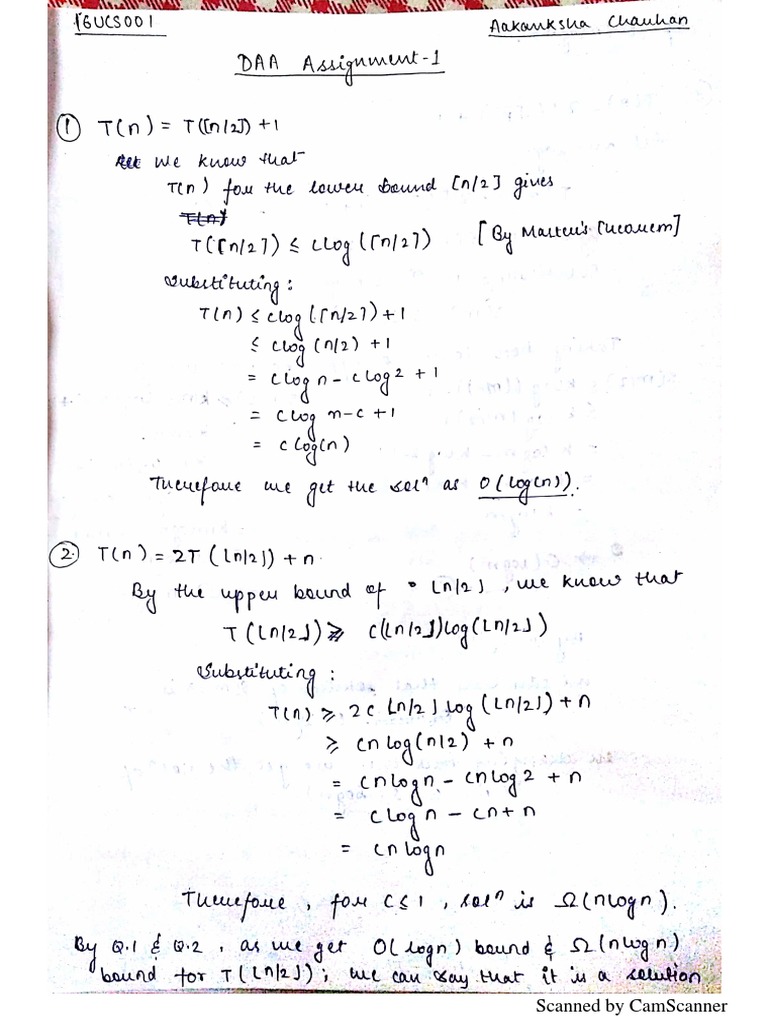 16UCS001
Aakanksha Chauhan
DAA Assignment-1
① T(n) = T(⌈n/2⌉) + 1
We know that
T(n) for the lower bound ⌈n/2⌉ gives
T(n)
T(⌈n/2⌉) ≤ clog(⌈n/2⌉) [By Master's Theorem]
Substituting:
T(n) ≤ clog(⌈n/2⌉) + 1
≤ clog(n/2) + 1
= clogn - clog2 + 1
= clog n - c + 1
= clog(n)
Therefore we get the solⁿ as O(log(n)).
② T(n) = 2T(⌊n/2⌋) + n.
By the upper bound of ⌊n/2⌋, we know that
T(⌊n/2⌋) ≥ c(⌊n/2⌋)log(⌊n/2⌋)
Substituting:
T(n) ≥ 2c⌊n/2⌋log(⌊n/2⌋) + n
≥ cnlog(n/2) + n
= cnlogn - cnlog2 + n
= clogn - cn + n
= cnlogn
Therefore, for c ≤ 1, solⁿ is Ω(nlogn).
By Q.1 & Q.2, as we get O(logn) bound & Ω(nlogn)
bound for T(⌊n/2⌋); we can say that it is a solution
Scanned by CamScanner